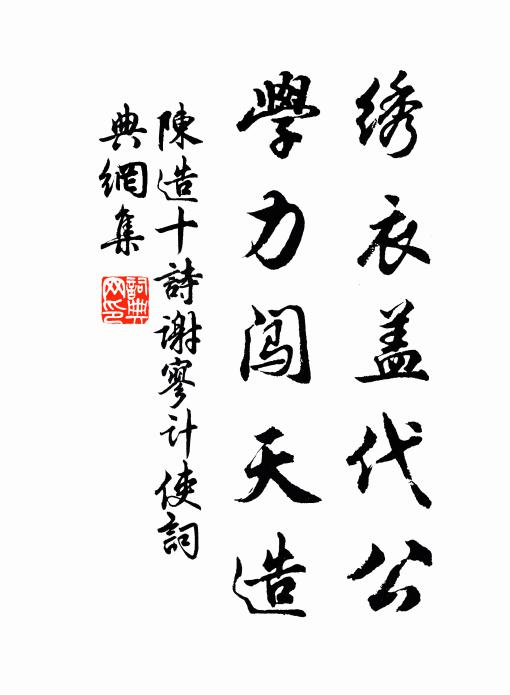 绣衣盖代公
學力闯天造
陳造十詩谢寥计使詞
典網集
詞典网印